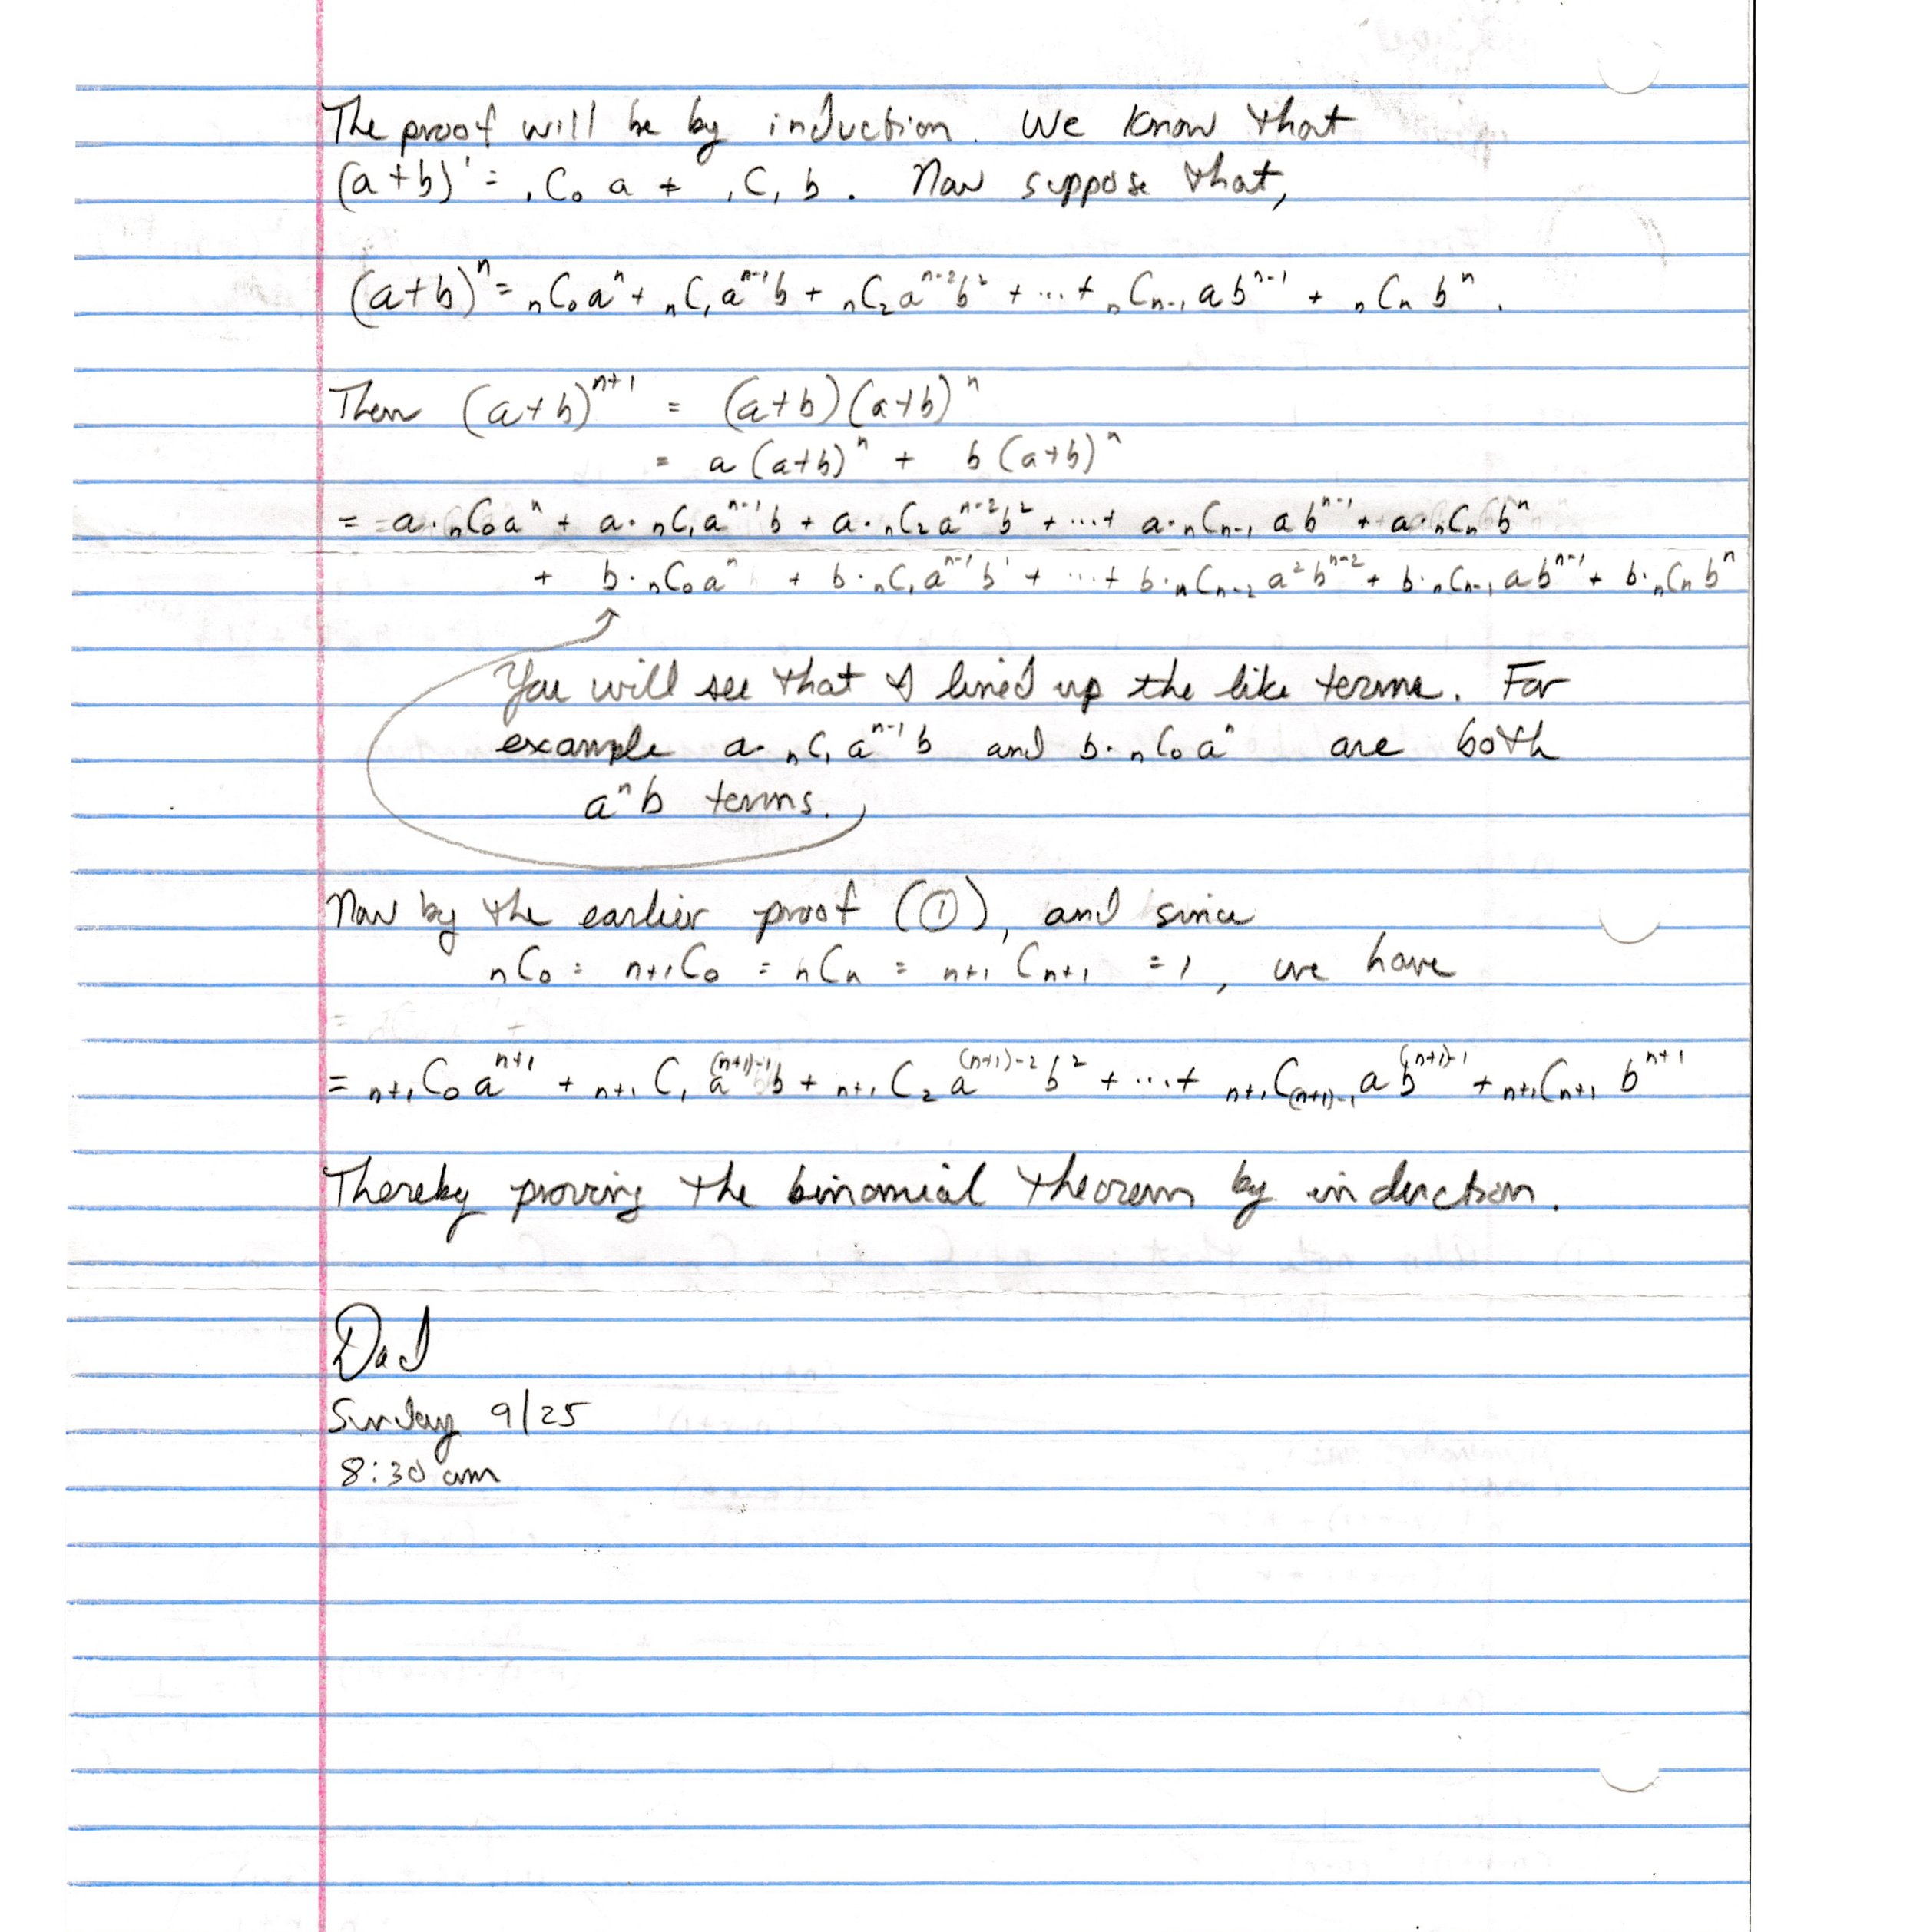 The proof will be by induction. We know that
(a+b)¹ = ₁C₀ a + ₁C₁ b. Now suppose that,
(a+b)ⁿ = ₙC₀aⁿ + ₙC₁aⁿ⁻¹b + ₙC₂aⁿ⁻²b² + ... + ₙCₙ₋₁ abⁿ⁻¹ + ₙCₙ bⁿ.
Then (a+b)ⁿ⁺¹ = (a+b)(a+b)ⁿ
= a(a+b)ⁿ + b(a+b)ⁿ
= a·ₙC₀aⁿ + a·ₙC₁aⁿ⁻¹b + a·ₙC₂aⁿ⁻²b² + ... + a·ₙCₙ₋₁ abⁿ⁻¹ + a·ₙCₙbⁿ
+ b·ₙC₀aⁿ + b·ₙC₁aⁿ⁻¹b¹ + ... + b·ₙCₙ₋₂ a²bⁿ⁻² + b·ₙCₙ₋₁abⁿ⁻¹ + b·ₙCₙbⁿ
You will see that I lined up the like terms. For
example a·ₙC₁aⁿ⁻¹b and b·ₙC₀aⁿ are both
aⁿb terms.
Now by the earlier proof (①), and since
ₙC₀ = ₙ₊₁C₀ = ₙCₙ = ₙ₊₁Cₙ₊₁ = 1, we have
= ₙ₊₁C₀aⁿ⁺¹ + ₙ₊₁C₁a⁽ⁿ⁺¹⁾⁻¹b + ₙ₊₁C₂a⁽ⁿ⁺¹⁾⁻²b² + ... + ₙ₊₁C₍ₙ₊₁₎₋₁ab⁽ⁿ⁺¹⁾⁻¹ + ₙ₊₁Cₙ₊₁ bⁿ⁺¹
Thereby proving the binomial theorem by induction.
Dad
Sunday 9/25
8:30 am